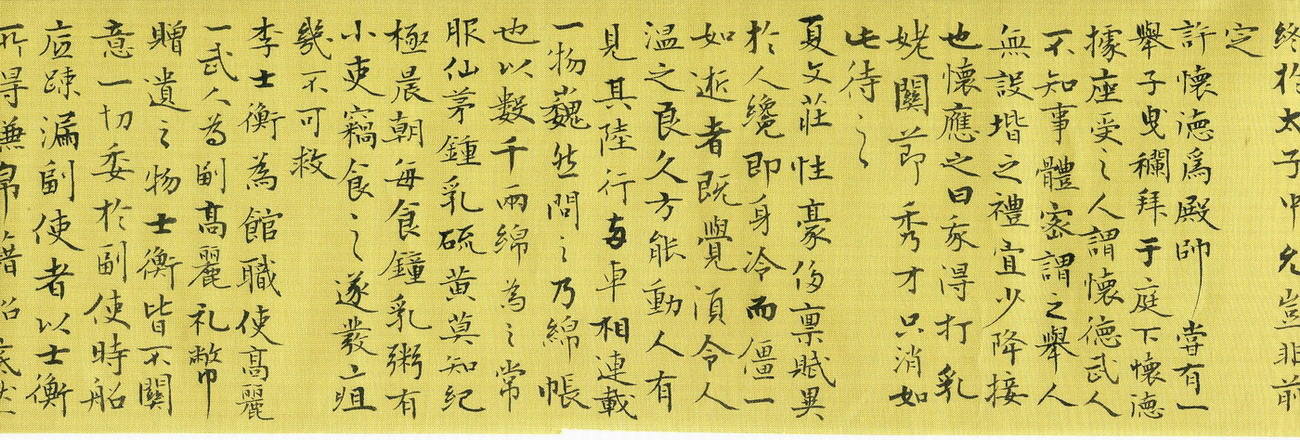 終於太子中允豈非前
定
許懷德為殿帥嘗有一
舉子曳襴拜于庭下懷德
據座受之人謂懷德武人
不知事體密謂之舉人
無設堦之禮宜少降接
也懷應之曰我得打乳
姥關節秀才只消如
此待之
夏文莊性豪侈禀賦異
於人纔即身冷而僵一
如逝者既覺須令人
溫之良久方能動人有
見其陸行兩車相連載
一物巍然問之乃綿帳
也以數千兩綿為之常
服仙茅鍾乳硫黃莫知紀
極晨朝每食鐘乳粥有
小吏竊食之遂發疽
幾不可救
李士衡為館職使高麗
一武人為副高麗礼幣
贈遺之物士衡皆不關
意一切委於副使時船
底疎漏副使者以士衡
所得縑帛藉船底然